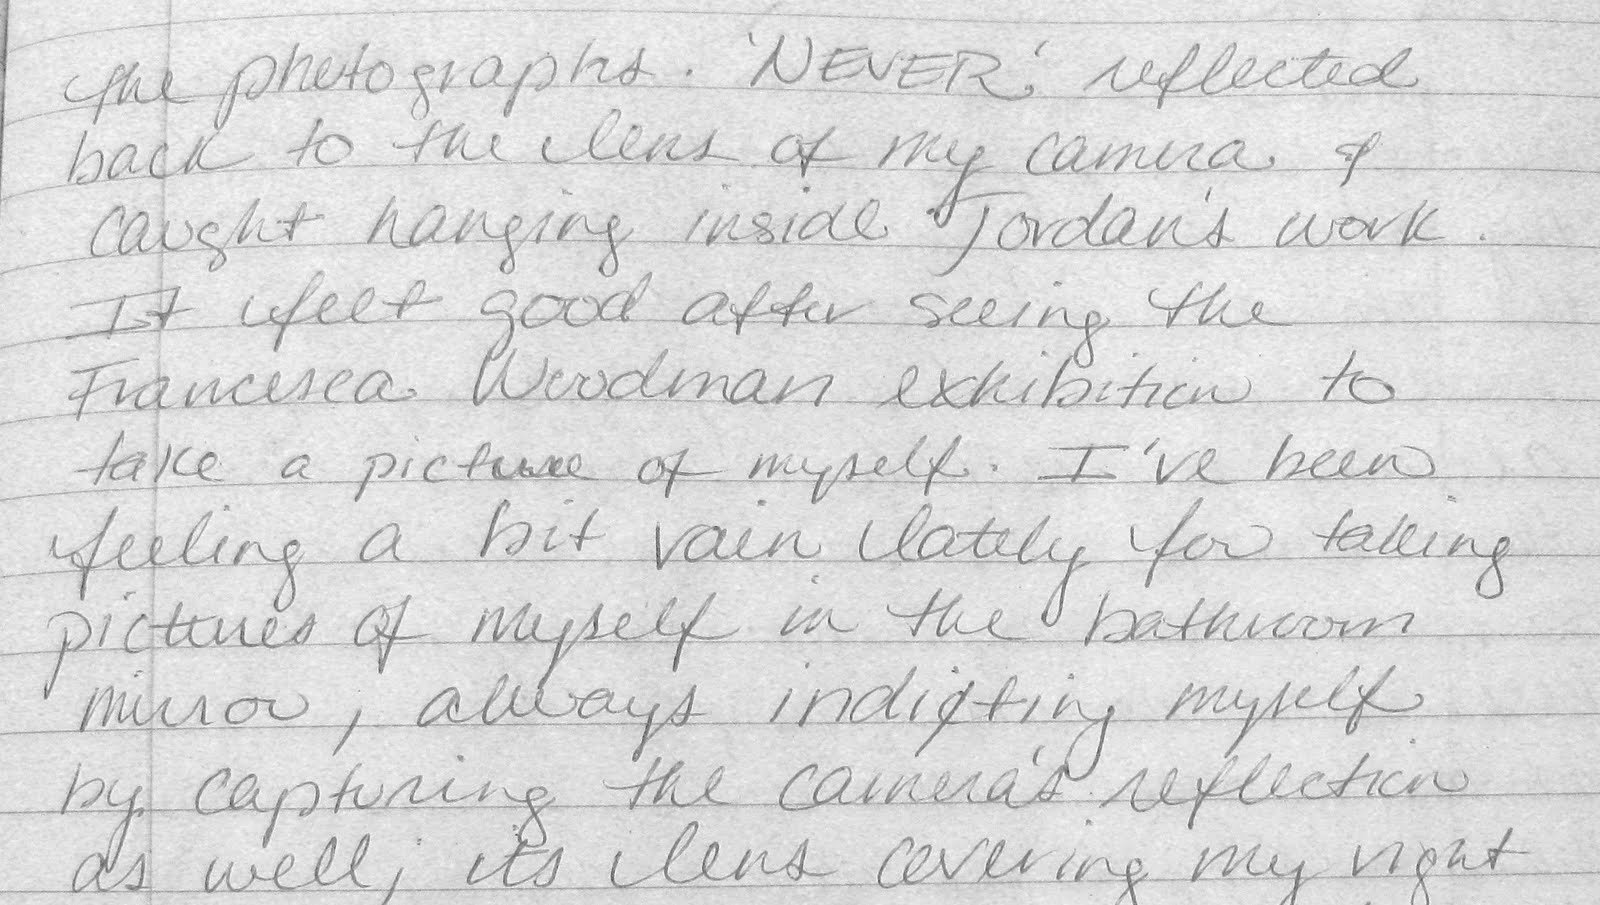 the photographs. 'NEVER', reflected
back to the lens of my camera &
caught hanging inside Jordan's work.
It felt good after seeing the
Francesca Woodman exhibition to
take a picture of myself. I've been
feeling a bit vain lately for taking
pictures of myself in the bathroom
mirror, always indicting myself
by capturing the camera's reflection
as well; its lens covering my right